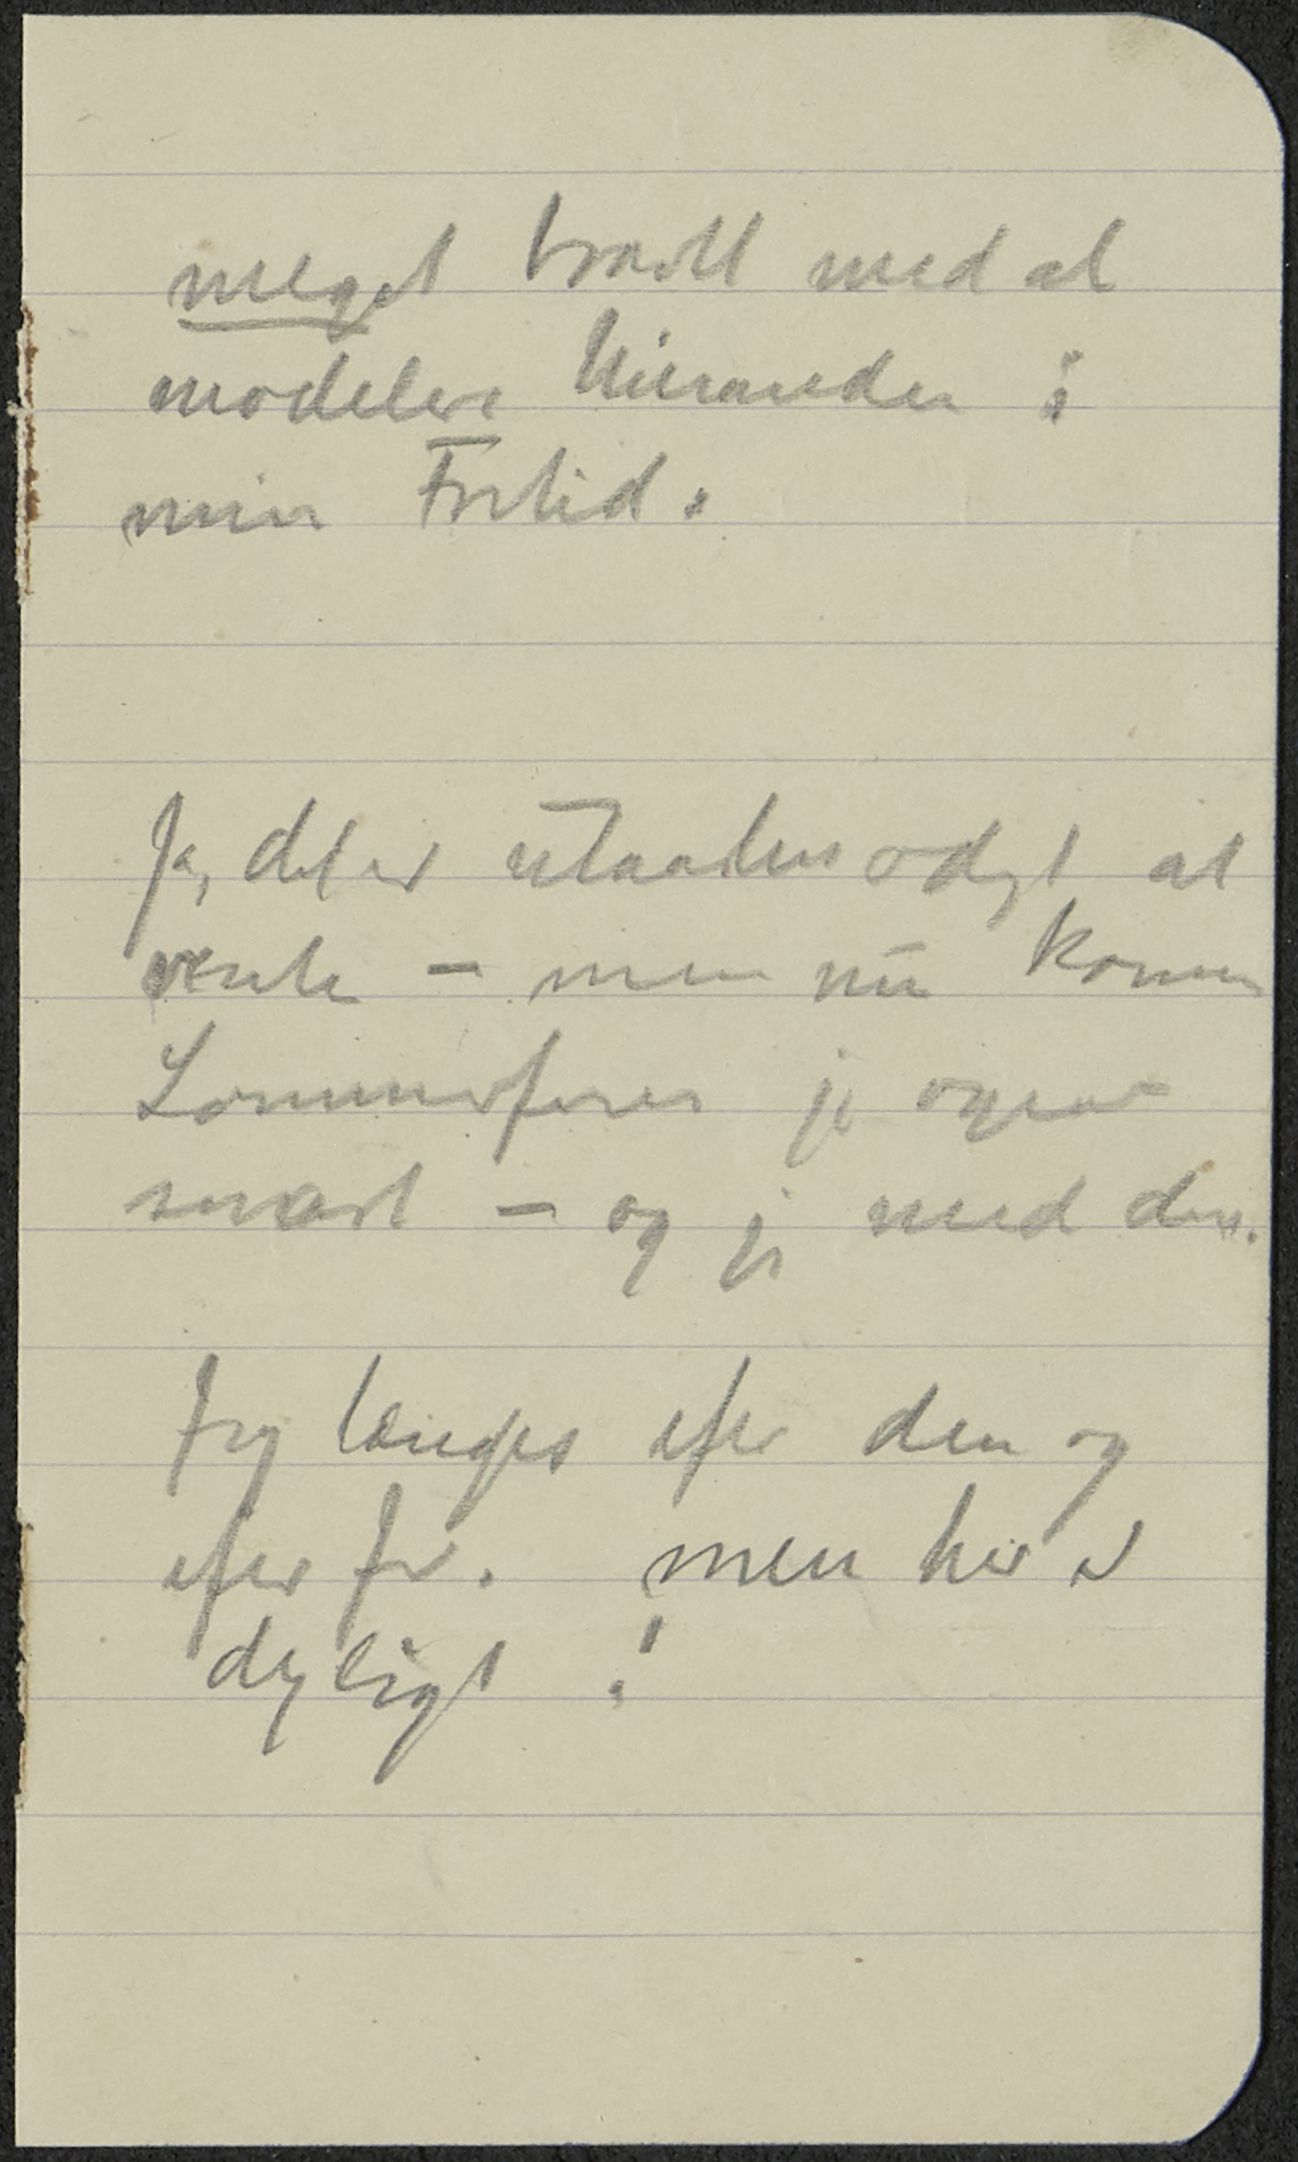 meget travlt med at
modelere Hierarder i
min Fritid.
Ja, det er utaalmodigt at
vente – men nu kommer
Sommerferien jo ogsaa
snart – og jeg med den.
Jeg længes efter den og
efter Jer. men her er
dejligt !